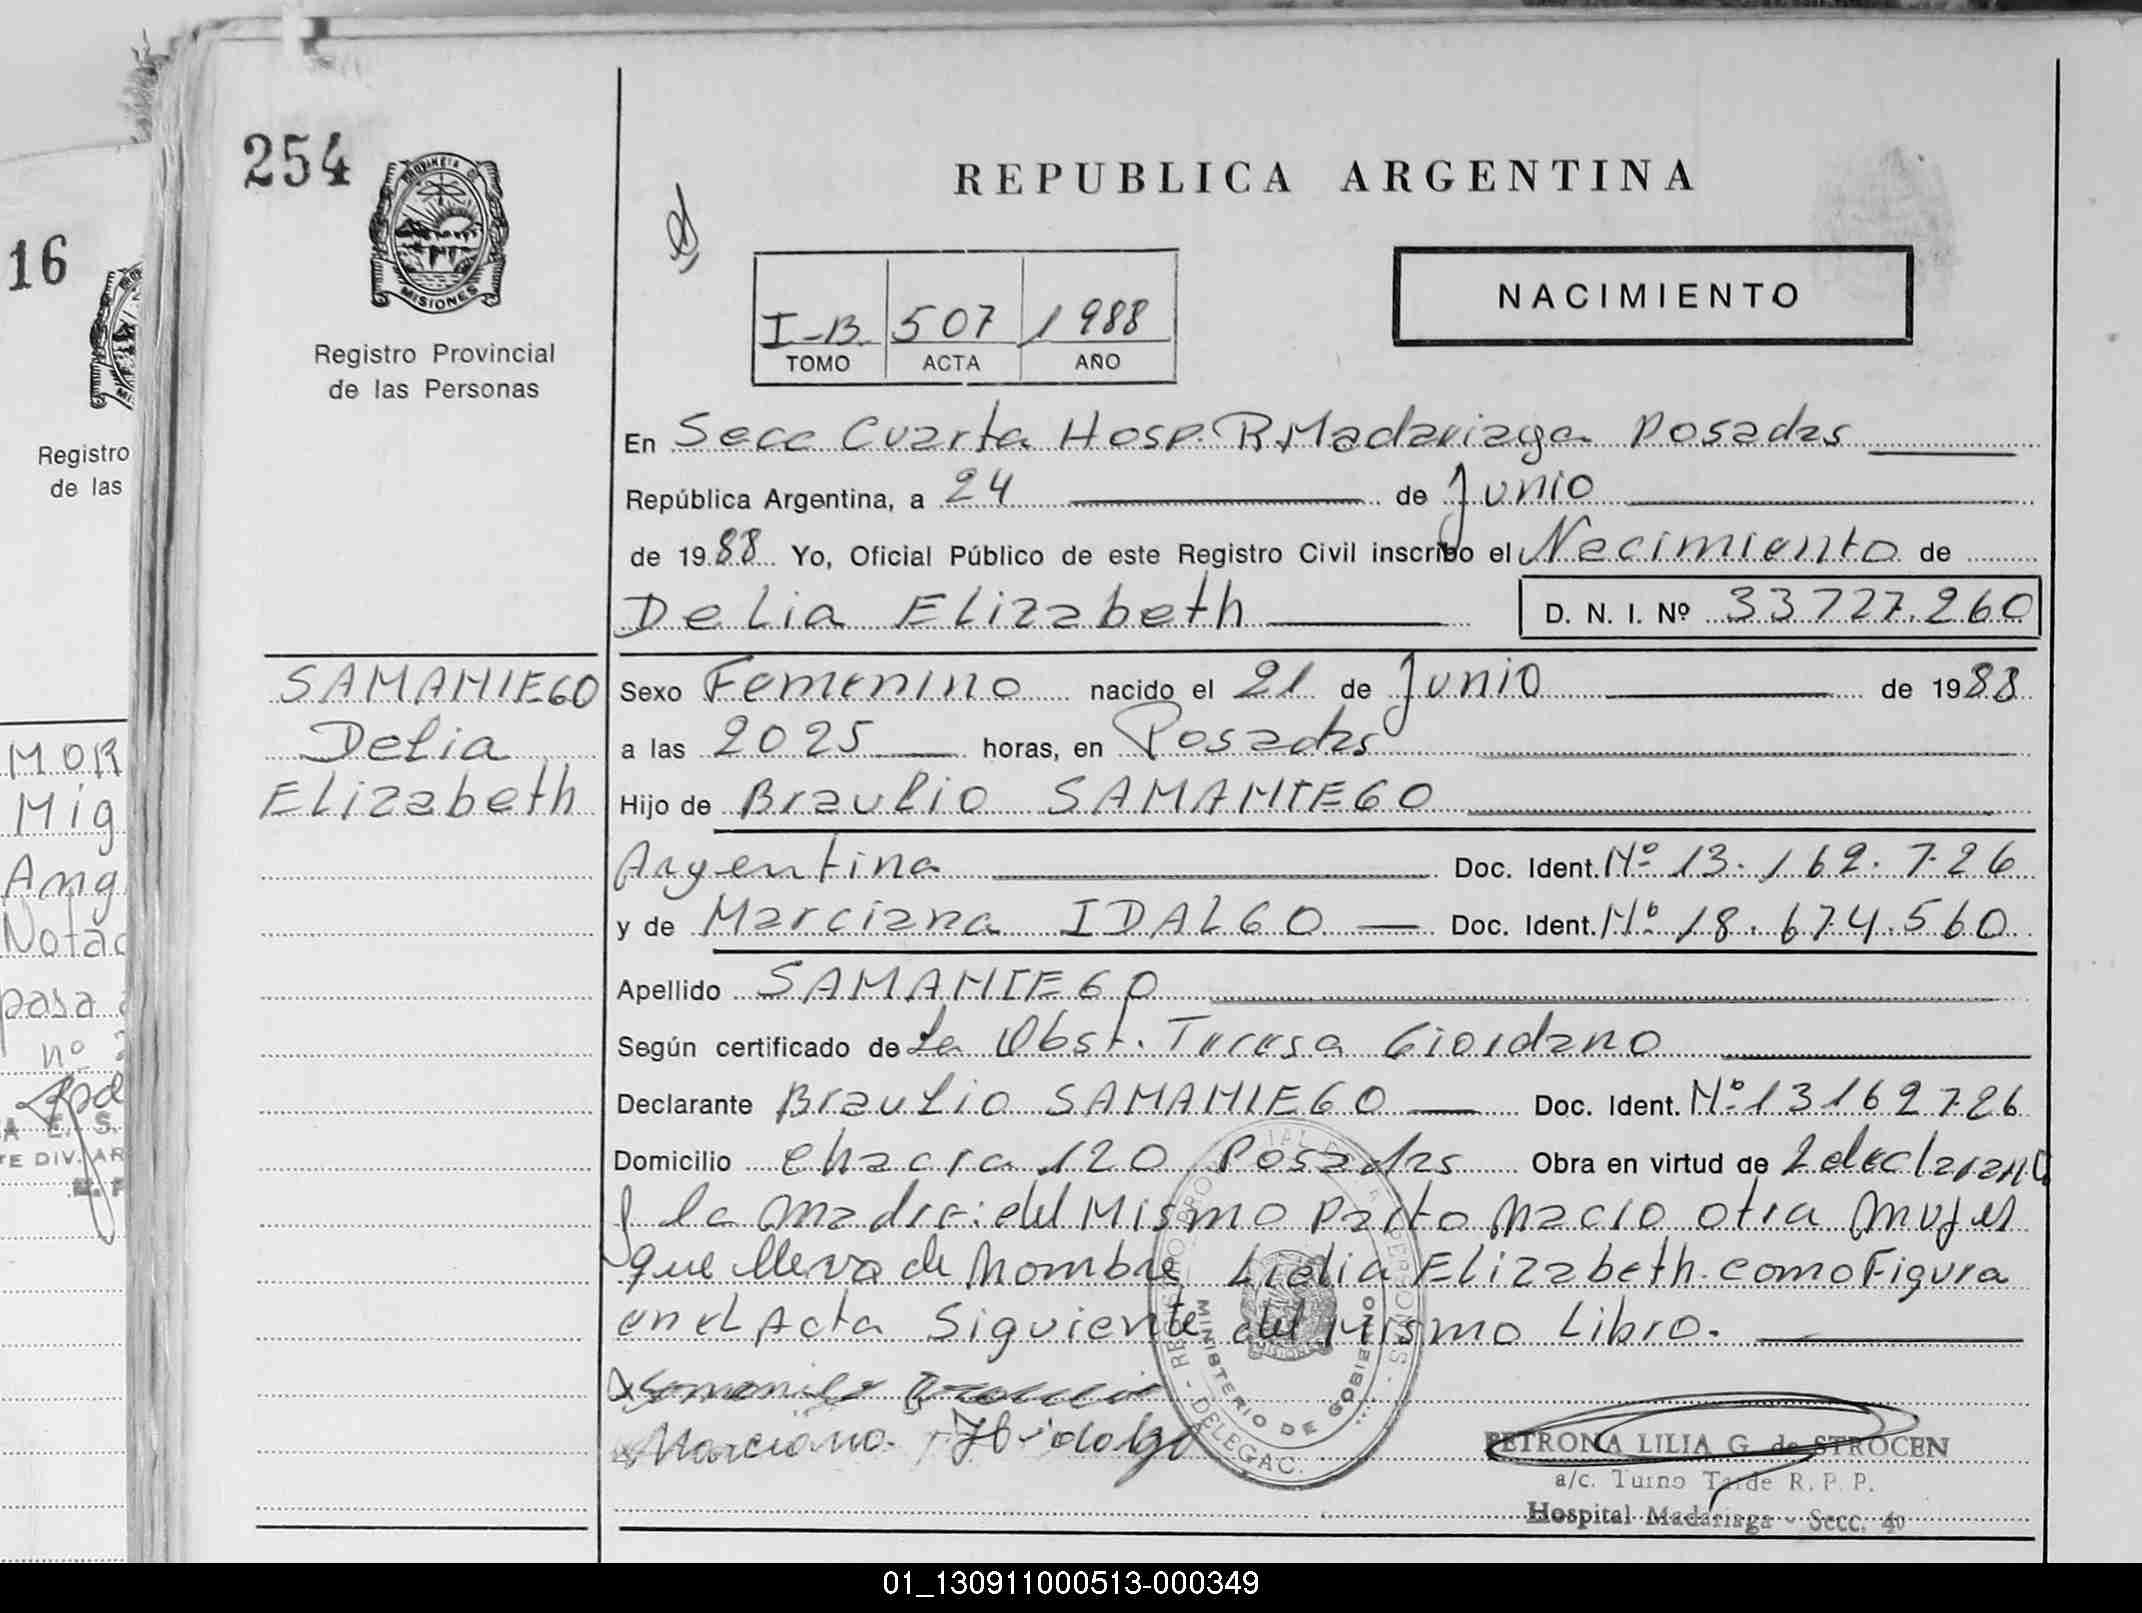 254
PROVINCIA DE
MISIONES
Registro Provincial
de las Personas
REPUBLICA ARGENTINA
NACIMIENTO
I-B. 507 1988
TOMO ACTA AÑO
En Secc Cuarta Hosp. R. Madariaga Posadas
República Argentina, a 24 de Junio
de 1988 Yo, Oficial Público de este Registro Civil inscribo el Nacimiento de
Delia Elizabeth D. N. I. Nº 33727.260
SAMANIEGO
Delia
Elizabeth
Sexo Femenino nacido el 21 de Junio de 1988
a las 2025 horas, en Posadas
Hijo de Braulio SAMANIEGO
Argentina Doc. Ident. Nº 13.162.726
y de Marciana IDALGO Doc. Ident. Nº 18.674.560
Apellido SAMANIEGO
Según certificado de La Obst. Teresa Giordano
Declarante Braulio SAMANIEGO Doc. Ident. Nº 13162726
Domicilio Chacra 120 Posadas Obra en virtud de
la madre: del Mismo Parto Nacio otra Mujer
que lleva de Nombre Lidia Elizabeth. como Figura
en el Acta Siguiente del Mismo Libro.
Marciana Hidalgo
MINISTERIO DE GOBIERNO
DELEGAC.
PETRONA LILIA G. de STROCEN
a/c. Turno Tarde R. P. P.
Hospital Madariaga - Secc. 4º
16
Registro
de las
MOR
Mig
Ang
Notac
pasa
nº
A E. S.
TE DIV. AR
01_130911000513-000349